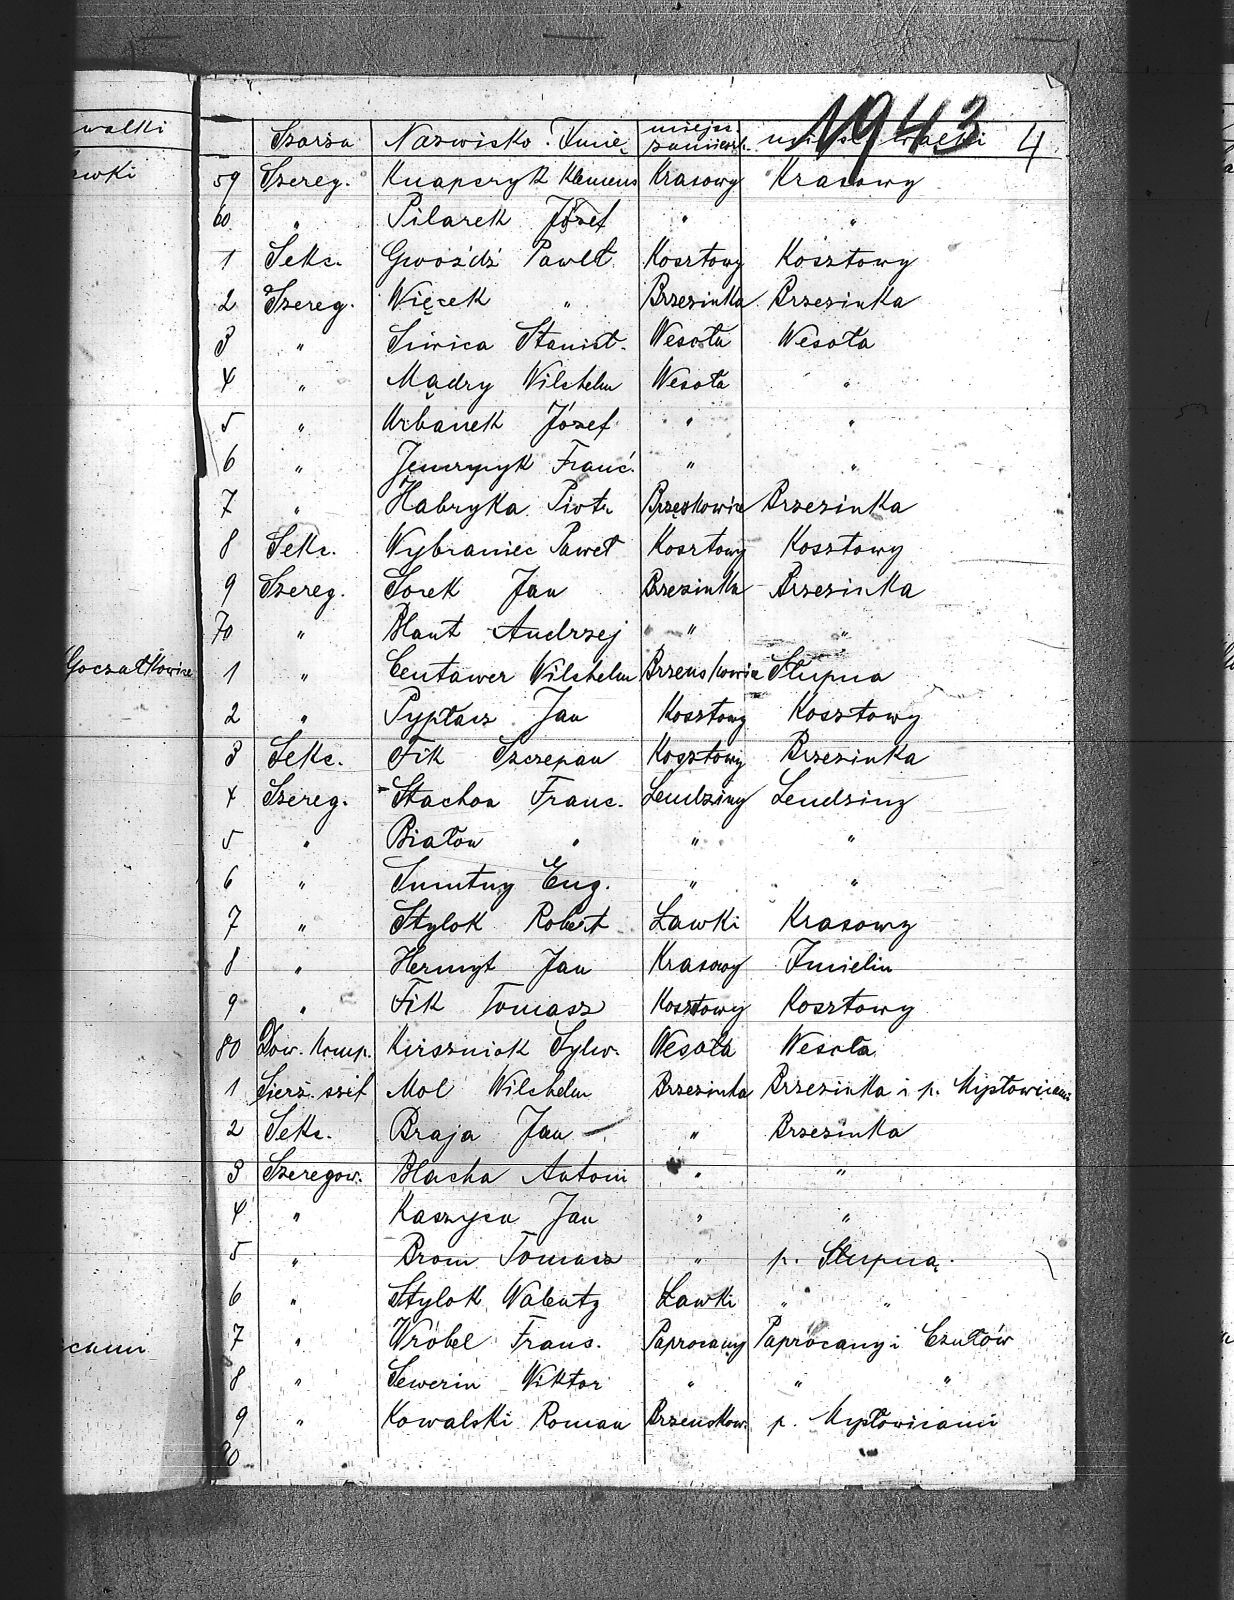 walki
ewki
Goczałkowice
icami
1943
4
Szarża Nazwisko. Imię miejsc. zamieszk. walki
59 Szereg. Knapczyk Klemens Krasowy Krasowy
60 " Pilarek Józef " "
1 Sekc. Gwoźdź Paweł Kosztowy Kosztowy
2 Szereg. Więcek " Brzezinka Brzezinka
3 " Siwica Stanisł. Wesoła Wesoła
4 " Mądry Wilchelm Wesoła "
5 " Urbanek Józef " "
6 " Franc. " "
7 " Habryka Piotr Brzęskowice Brzezinka
8 Sekc. Wybraniec Paweł Kosztowy Kosztowy
9 Szereg. Sorek Jan Brzezinka Brzezinka
70 " Blaut Andrzej " "
1 " Centawer Wilchelm Brzenskowice Słupna
2 " Pyptacz Jan Kosztowy Kosztowy
3 Sekc. Fik Szczepan Kosztowy Brzezinka
4 Szereg. Stachoń Franc. Lendziny Lendziny
5 " Białoń " " "
6 " Smutny Eug. " "
7 " Stylok Robert Ławki Krasowy
8 " Hermyt Jan Krasowy Imielin
9 " Fik Tomasz Kosztowy Kosztowy
80 Dow. Komp. Kirszniok Sylw. Wesoła Wesoła
1 Sierż. szef Mol Wilchelm Brzezinka Brzezinka i p. Mysłowicami
2 Sekc. Braja Jan " Brzezinka
3 Szeregow. Blacha Antoni " "
4 " Kaszyca Jan " "
5 " Brom Tomasz " p. Słupną.
6 " Stylok Walenty Ławki " "
7 " Wróbel Franc. Paprocany Paprocany i Czułów
8 " Sewerin Wiktor " " "
9 " Kowalski Roman Brzenskow. p. Mysłowicami
90